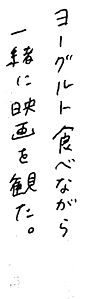 ヨーグルト食べながら
一緒に映画を観た。